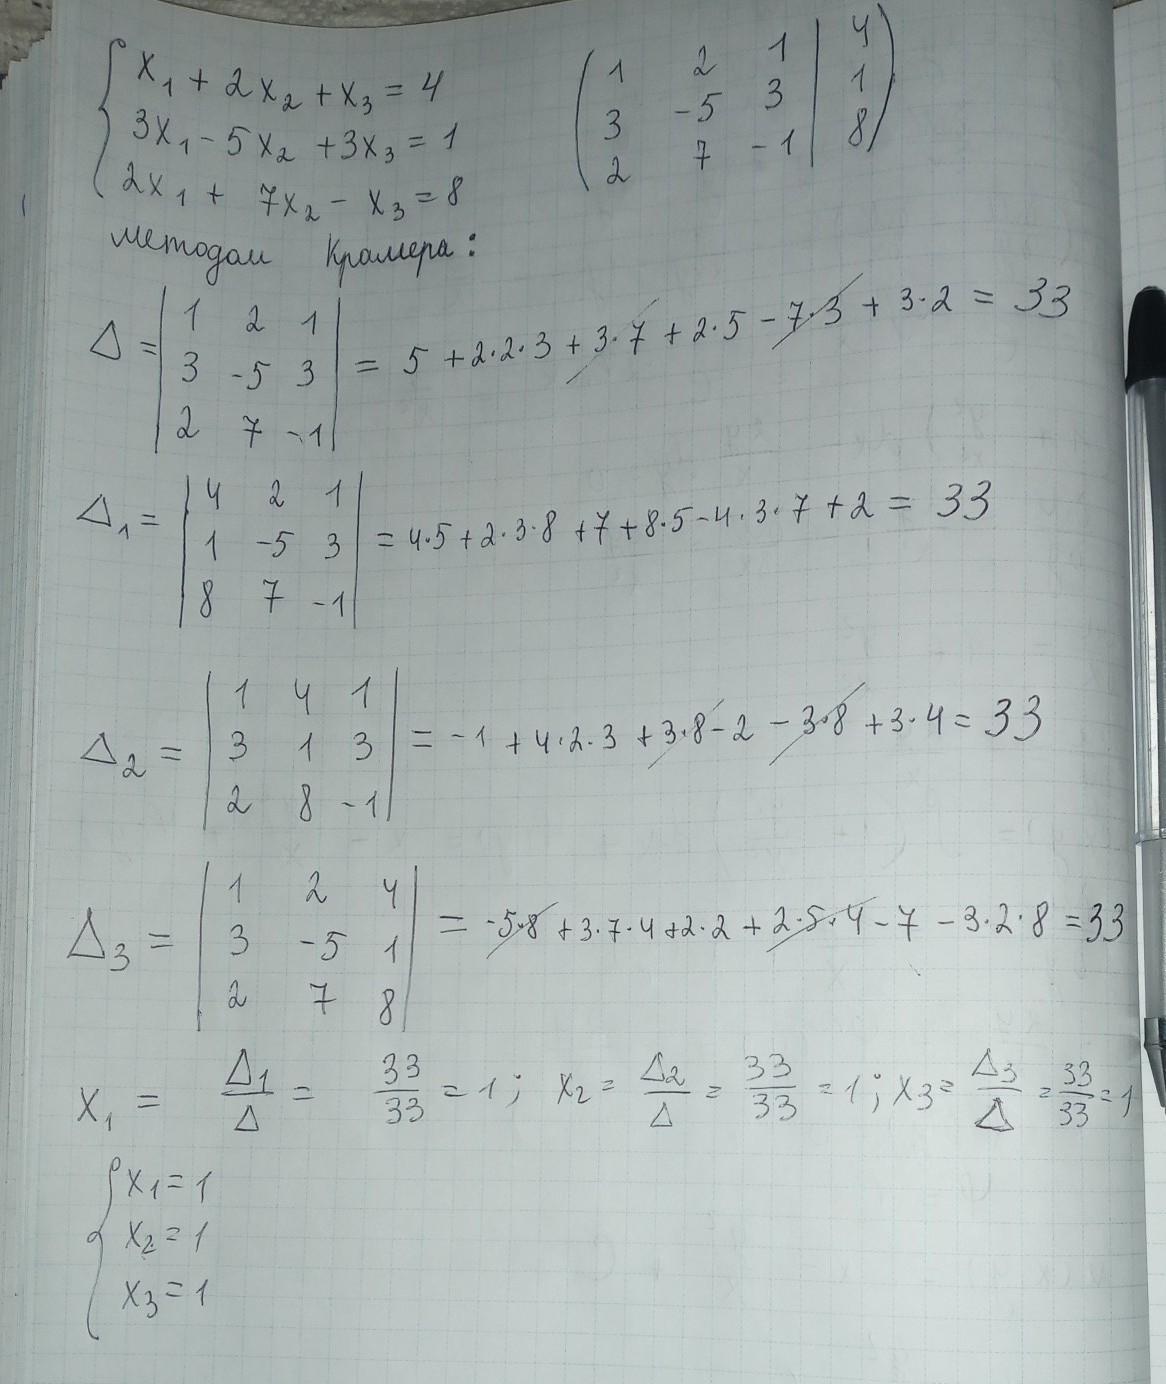 x₁ + 2x₂ + x₃ = 4
3x₁ - 5x₂ + 3x₃ = 1
2x₁ + 7x₂ - x₃ = 8
1 2 1 | 4
3 -5 3 | 1
2 7 -1 | 8
методом Крамера:
Δ = | 1 2 1 |
| 3 -5 3 | = 5 + 2·2·3 + 3·7 + 2·5 - 7·3 + 3·2 = 33
| 2 7 -1 |
Δ₁ = | 4 2 1 |
| 1 -5 3 | = 4·5 + 2·3·8 + 7 + 8·5 - 4·3·7 + 2 = 33
| 8 7 -1 |
Δ₂ = | 1 4 1 |
| 3 1 3 | = -1 + 4·2·3 + 3·8 - 2 - 3·8 + 3·4 = 33
| 2 8 -1 |
Δ₃ = | 1 2 4 |
| 3 -5 1 | = -5·8 + 3·7·4 + 2·2 + 2·5·4 - 7 - 3·2·8 = 33
| 2 7 8 |
x₁ = Δ₁/Δ = 33/33 = 1; x₂ = Δ₂/Δ = 33/33 = 1; x₃ = Δ₃/Δ = 33/33 = 1
x₁ = 1
x₂ = 1
x₃ = 1